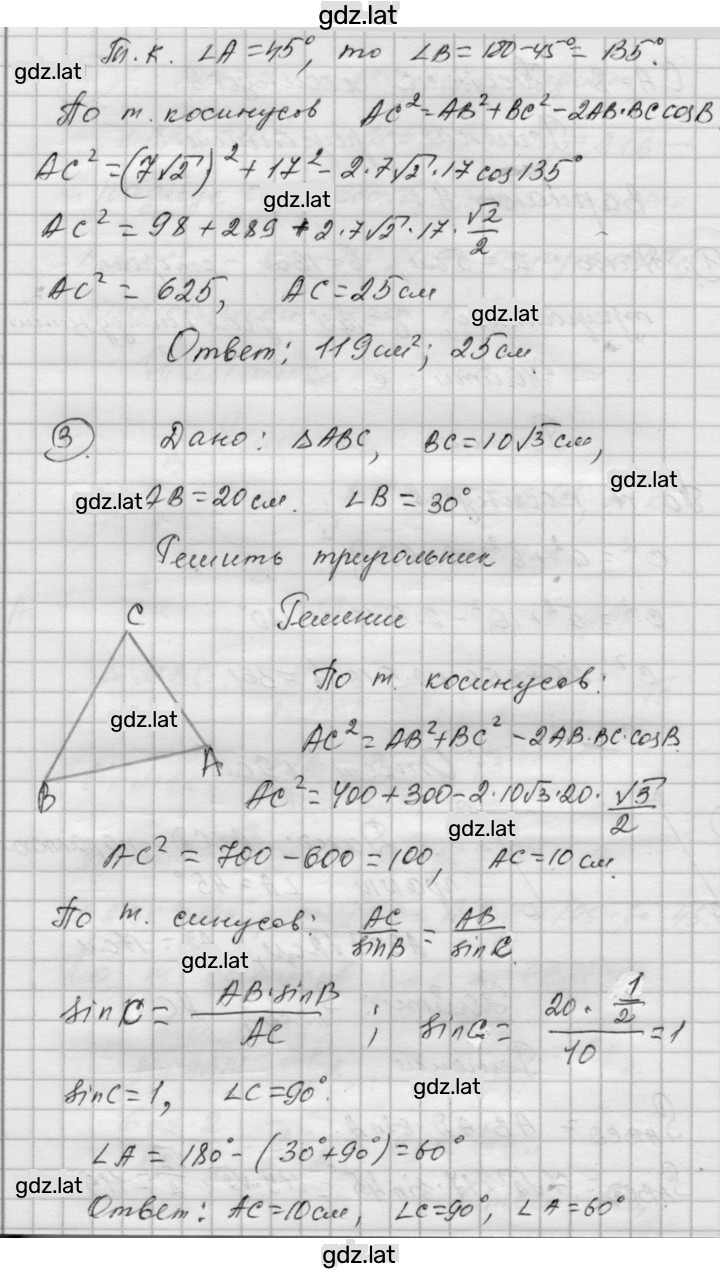 gdz.lat
Т.к. ∠A = 45°, то ∠B = 180 - 45° = 135°.
gdz.lat
По т. косинусов AC² = AB² + BC² - 2AB·BC cos B
AC² = (7√2)² + 17² - 2·7√2·17 cos 135°
gdz.lat
AC² = 98 + 289 + 2·7√2·17·√2/2
AC² = 625, AC = 25 см
gdz.lat
Ответ: 119 см²; 25 см.
3. Дано: ΔABC, BC = 10√3 см,
gdz.lat
gdz.lat AB = 20 см. ∠B = 30°.
Решить треугольник
C Решение
По т. косинусов:
gdz.lat
AC² = AB² + BC² - 2AB·BC·cos B.
A
B
AC² = 400 + 300 - 2·10√3·20·√3/2
gdz.lat
AC² = 700 - 600 = 100, AC = 10 см.
По т. синусов: AC/sin B = AB/sin C.
gdz.lat
sin C = AB·sin B/AC ; sin C = 20·1/2/10 = 1
sin C = 1, ∠C = 90°.
gdz.lat
∠A = 180° - (30° + 90°) = 60°
gdz.lat
Ответ: AC = 10 см, ∠C = 90°, ∠A = 60°
gdz.lat